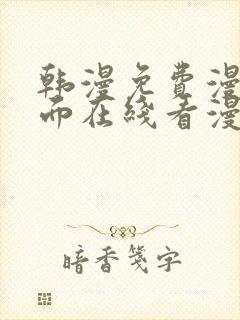 韩漫免费漫
而在线看漫
暗香笺字